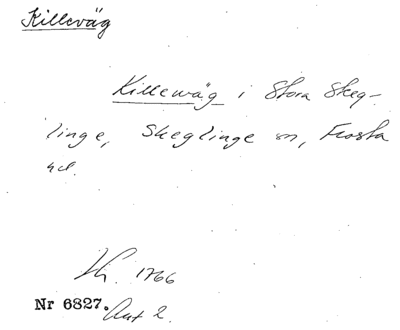 Killeväg
Killewäg i Stora Skeg-
linge, Skeglinge sn, Frosta
hd.
Lh. 1766
Nr 6827. Akt 2.